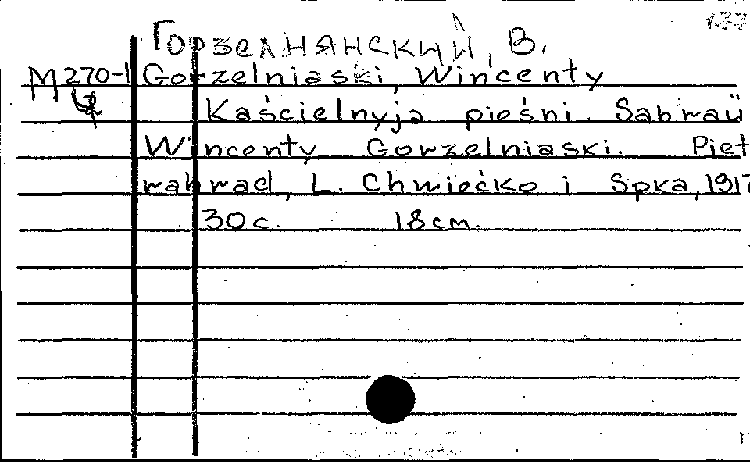 Горзелнянский, В.
M 270-1 Gorzelniaski, Wincenty
Kaścielnyja pieśni. Sabraŭ
Wincenty Gorzelniaski. Piet
rahrad, L. Chmiećko i Spka, 1917
30 c. 18 cm.